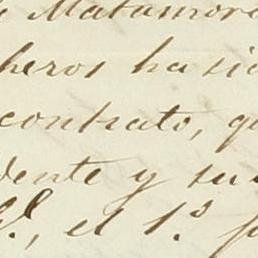 Matamoro
heros ha sid
contrato, qu
dente y su
el 1.º